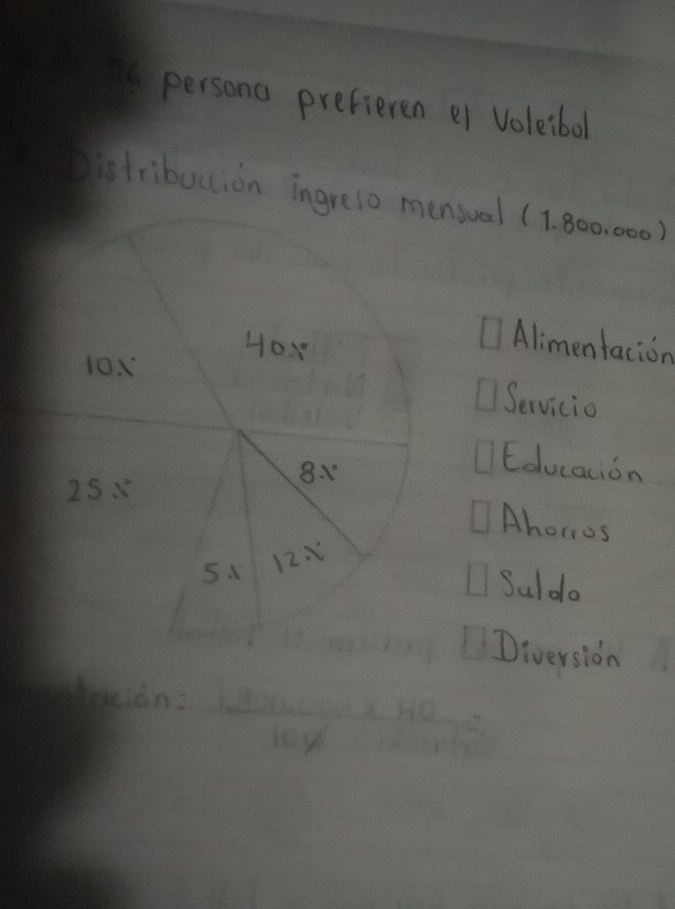 persona prefieren el Voleibol
Distribucción ingreso mensual (1.800.000)
40%
10%
25%
8%
12%
5%
Alimentación
Servicio
Educación
Ahorros
Saldo
Diversión
1.800.000 x 40 =
100